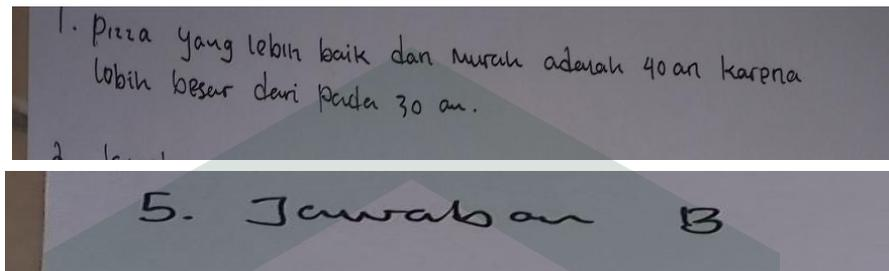 1. Pizza yang lebih baik dan murah adalah 40 an karena
lebih besar dari pada 30 an.
5. Jawaban B